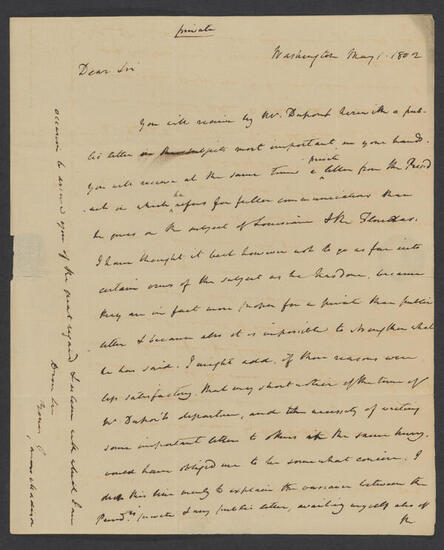 private
Washington May 1. 1802
Dear Sir
You will receive by Mr. Dupont herewith a pub-
lic letter on the subjects most important in your hands.
You will receive at the same time a private letter from the Presid
ent in which he refers for fuller communications than
he gives on the subject of Louisiana & the Floridas.
I have thought it best however not to go as far into
certain views of the subject as he has done, because
they are in fact more proper for a private than public
letter & because also it is impossible to strengthen what
he has said. I might add, if these reasons were
less satisfactory that very short notice of the time of
Mr Dupont's departure, and the necessity of writing
some important letters to others at the same hurry.
would have obliged me to be somewhat concise. I
drop this line merely to explain the variance between the
Presdts private & my public letter, availing myself also of
the
occasion to assure you of the great regard & esteem with which I am
Dear Sir
Yours
James Madison